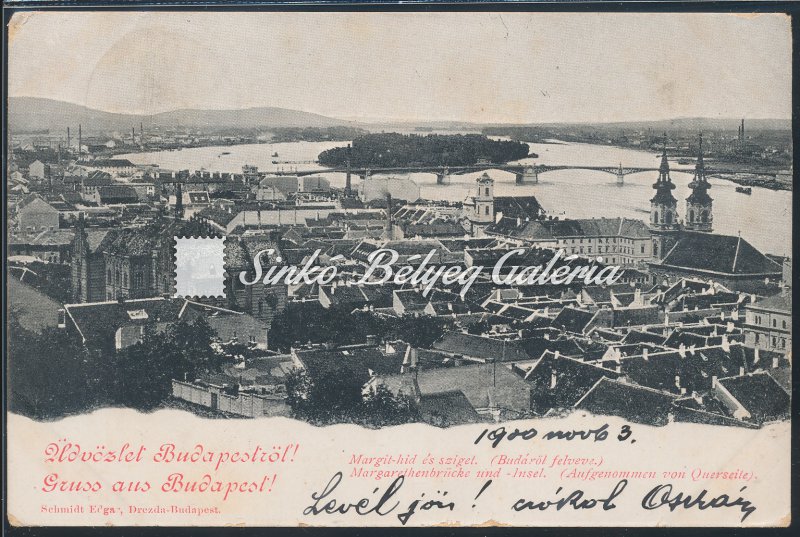 Sinko Bélyeg Galéria
1900 novb 3.
Üdvözlet Budapestről!
Gruss aus Budapest!
Margit-hid és sziget. (Budáról felveve.)
Margarethenbrücke und -Insel. (Aufgenommen von Querseite).
Schmidt Edgar, Drezda-Budapest.
Levél jön! csókol Oszkár